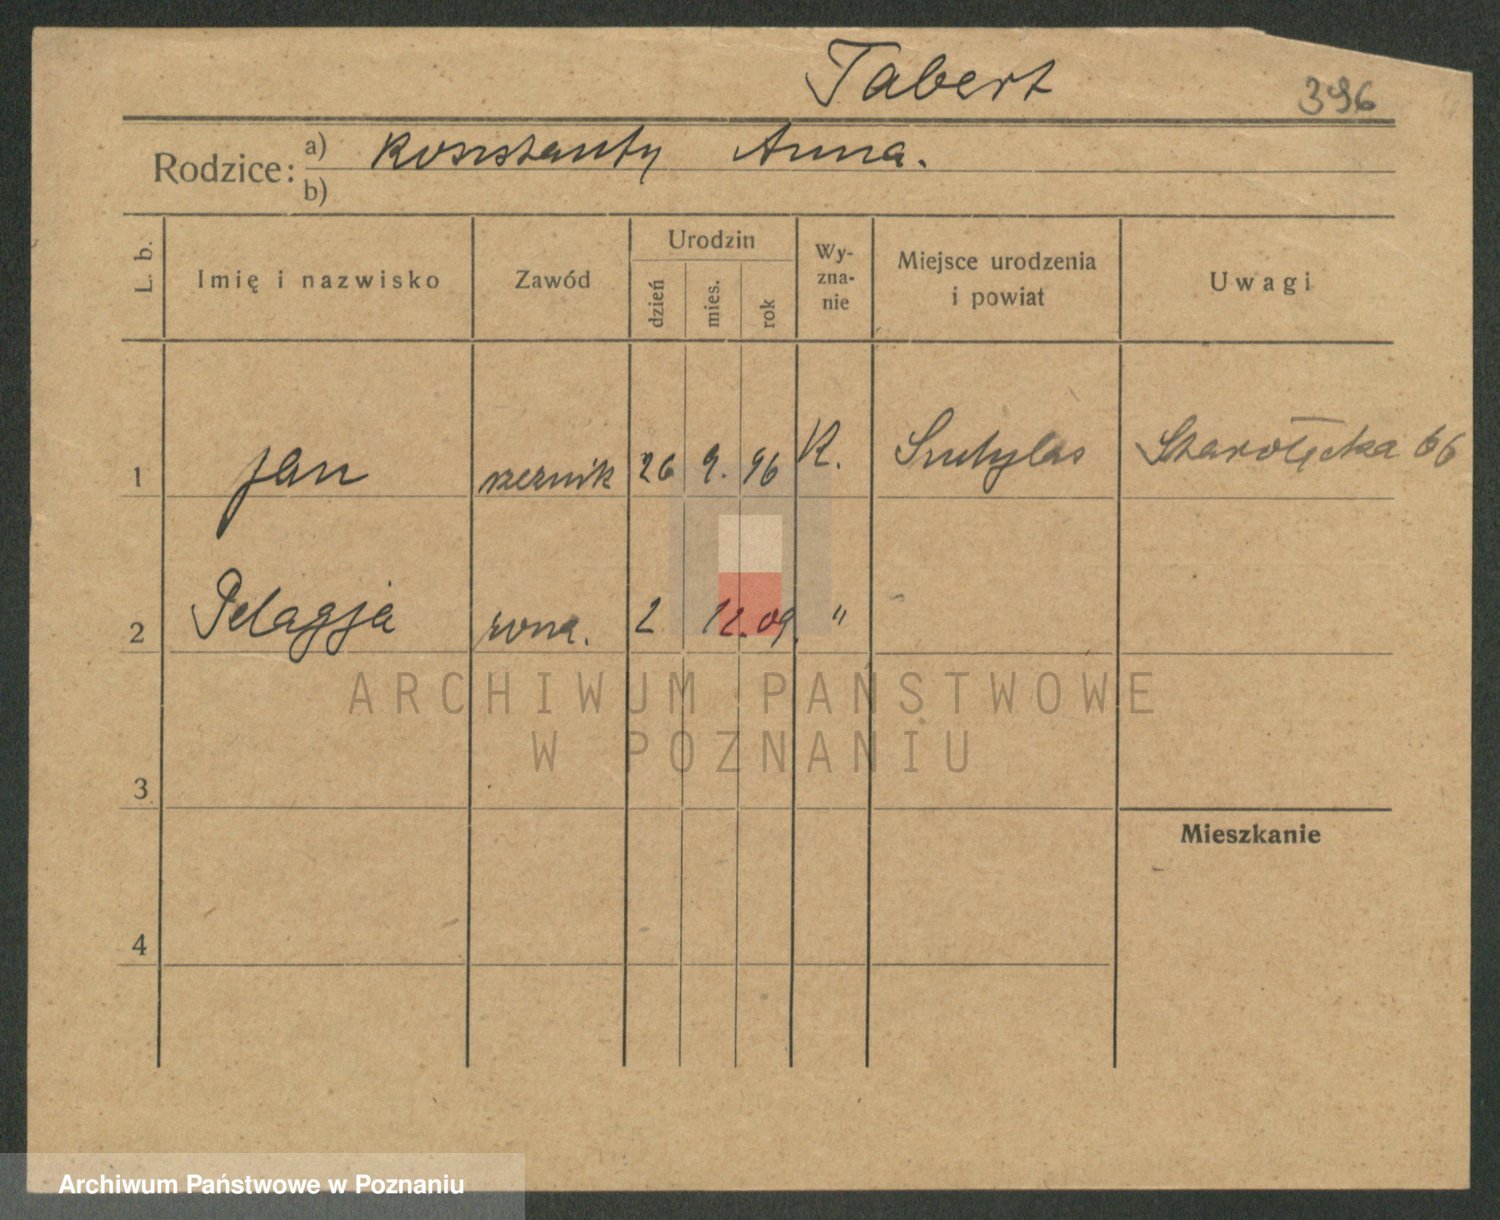 Tabert 396
Rodzice: a) Konstanty Anna.
b)
L. b. Imię i nazwisko Zawód Urodzin dzień mies. rok Wy-zna-nie Miejsce urodzenia i powiat Uwagi
1 Jan 26 9. 96 K. Starołęcka 66
2 Pelagja żona. 2 12. 09. "
ARCHIWUM PAŃSTWOWE
W POZNANIU
3
Mieszkanie
4
Archiwum Państwowe w Poznaniu